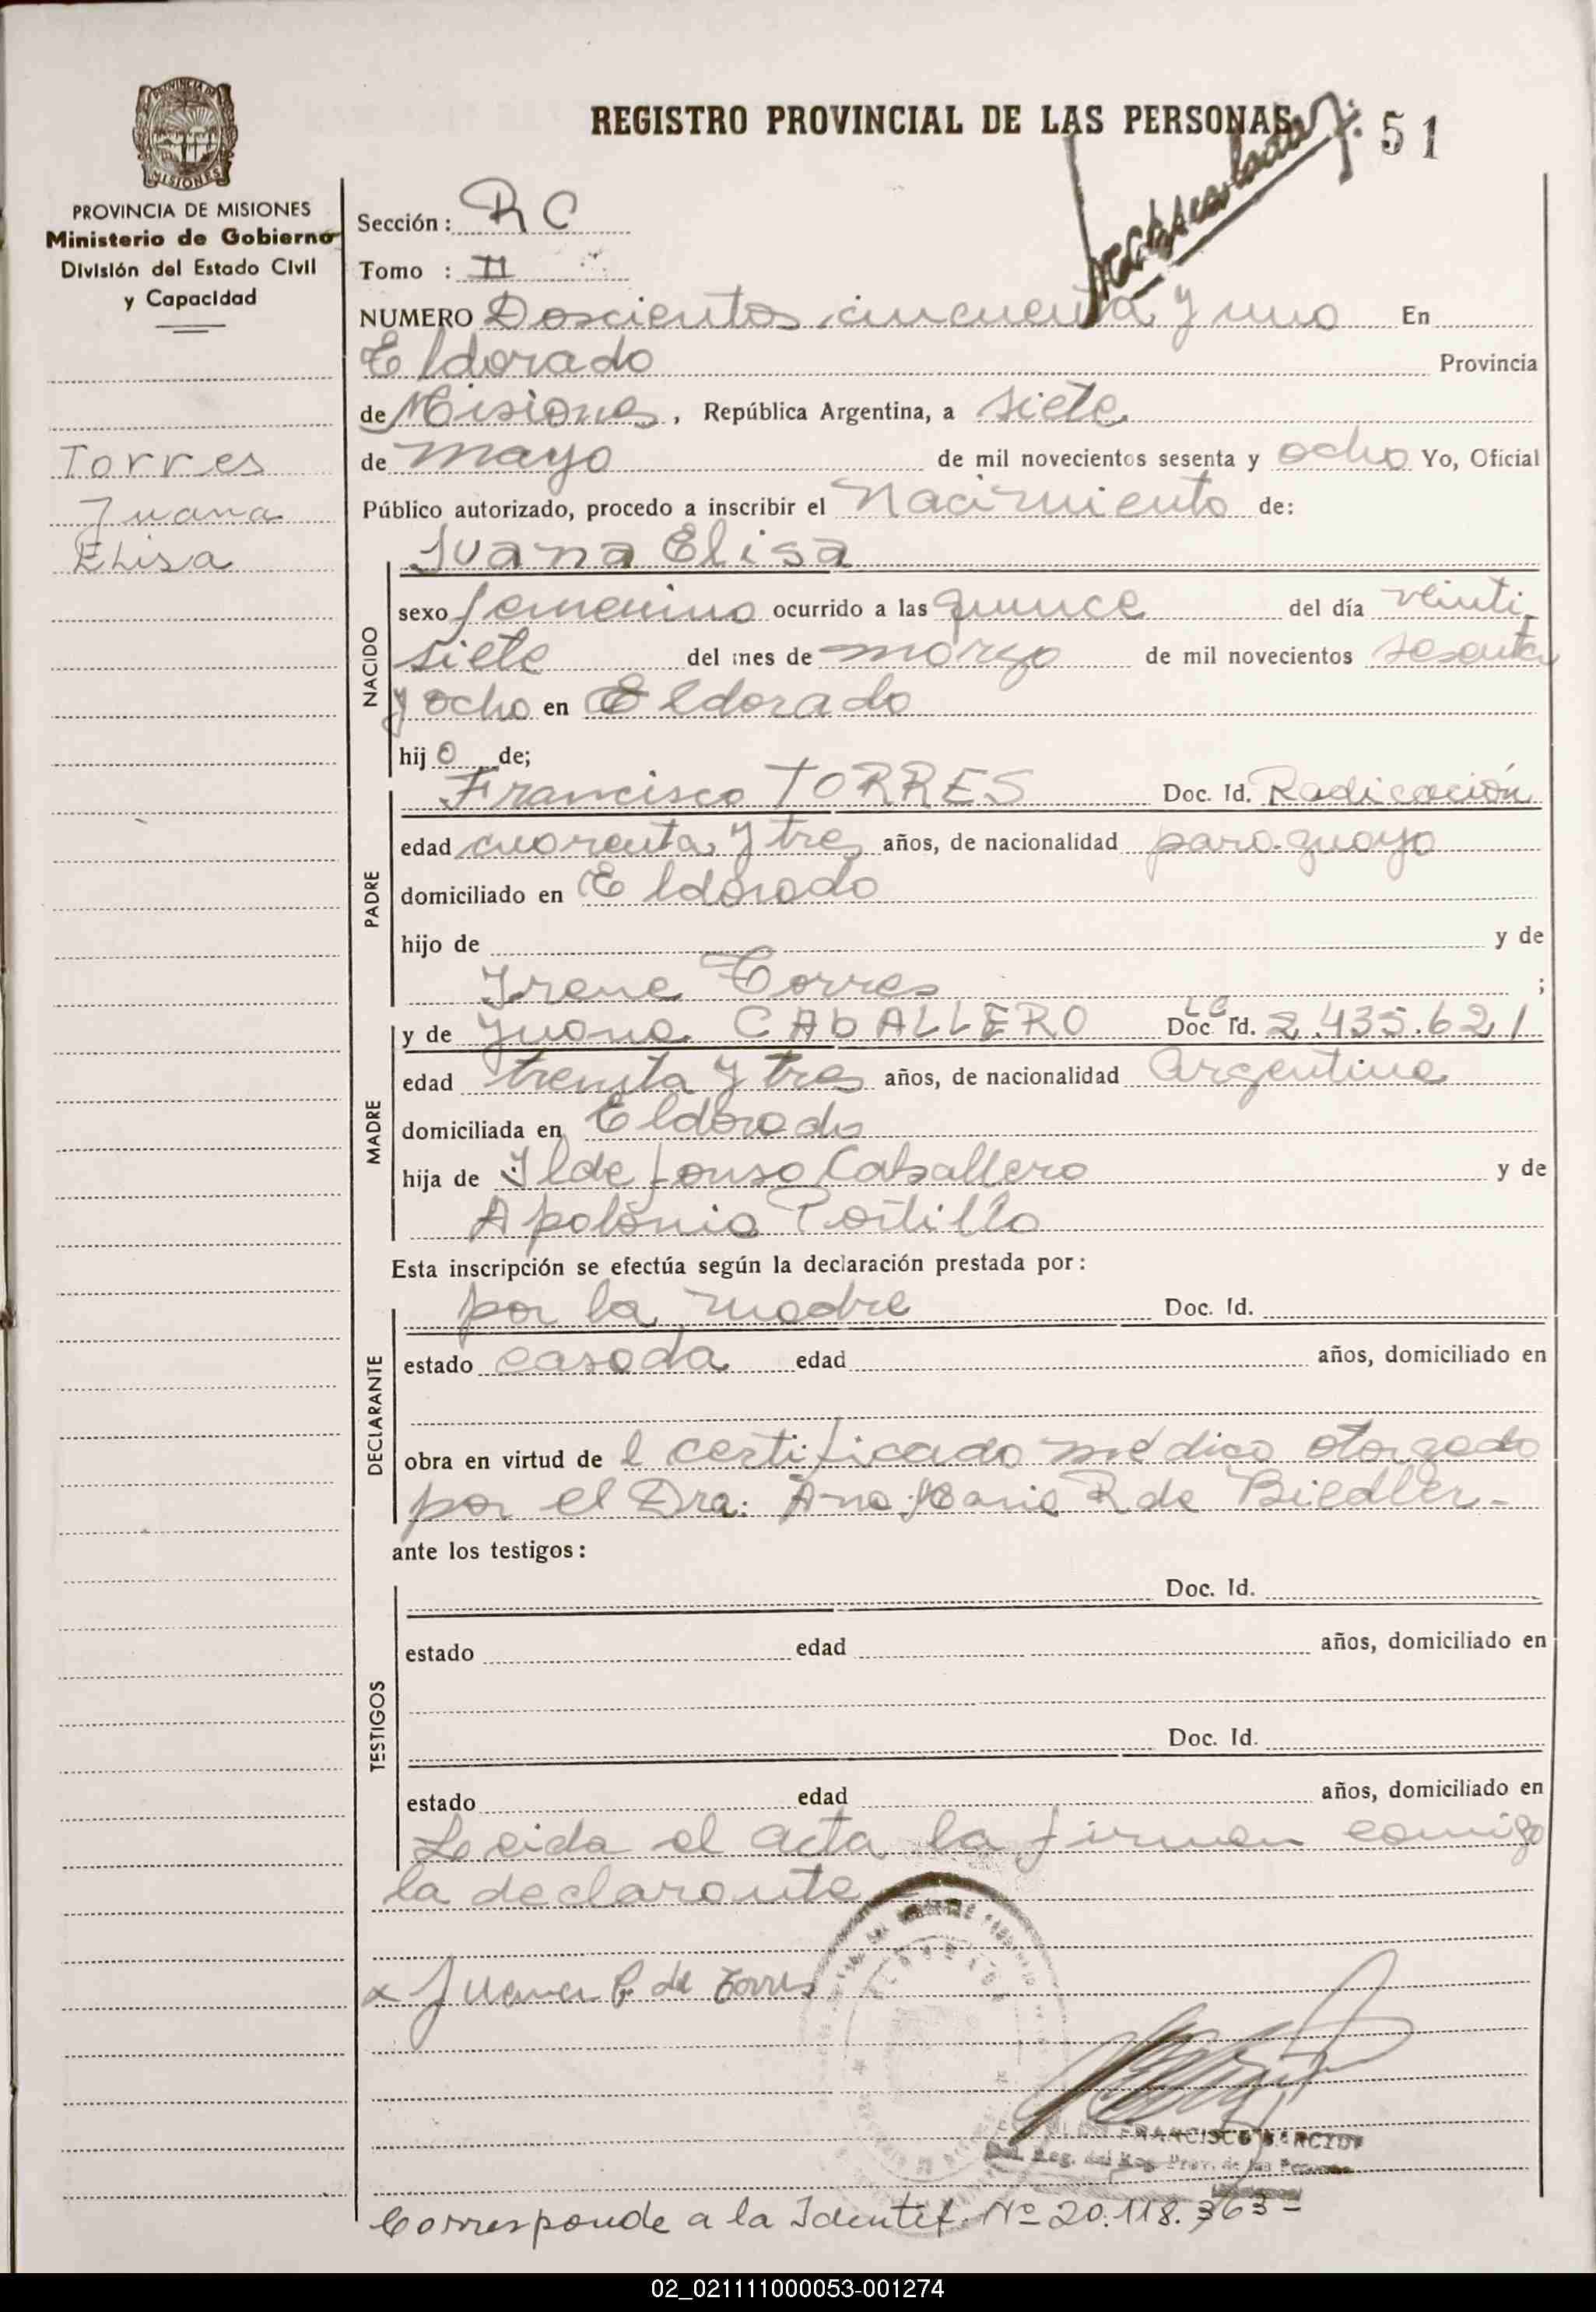 REGISTRO PROVINCIAL DE LAS PERSONAS
51
PROVINCIA DE MISIONES
Ministerio de Gobierno
División del Estado Civil
y Capacidad
Torres
Juana
Elisa
Sección: RC
Tomo : II
NUMERO Doscientos cincuenta y uno En
Eldorado Provincia
de Misiones, República Argentina, a siete
de mayo de mil novecientos sesenta y ocho Yo, Oficial
Público autorizado, procedo a inscribir el Nacimiento de:
NACIDO
Juana Elisa
sexo femenino ocurrido a las quince del día veinti
siete del mes de marzo de mil novecientos sesenta
y ocho en Eldorado
hij o de;
PADRE
Francisco TORRES Doc. Id. Radicación
edad cuarenta y tres años, de nacionalidad paraguayo
domiciliado en Eldorado
hijo de y de
Irene Torres ;
MADRE
y de Juana CABALLERO LC Doc. Id. 2.435.621
edad treinta y tres años, de nacionalidad Argentina
domiciliada en Eldorado
hija de Ildefonso Caballero y de
Apolonia Portillo
Esta inscripción se efectúa según la declaración prestada por:
DECLARANTE
por la madre Doc. Id.
estado casada edad años, domiciliado en
obra en virtud de l certificado médico otorgado
por el Dra. Ana Maria R de Biedler.-
ante los testigos:
TESTIGOS
Doc. Id.
estado edad años, domiciliado en
Doc. Id.
estado edad años, domiciliado en
Leida el acta la firman comigo
la declarante
x Juana C. de Torres
FRANCISCO
Reg. del Reg. Prov. de las Personas
Corresponde a la Identif. Nº 20.118.363-
02_021111000053-001274